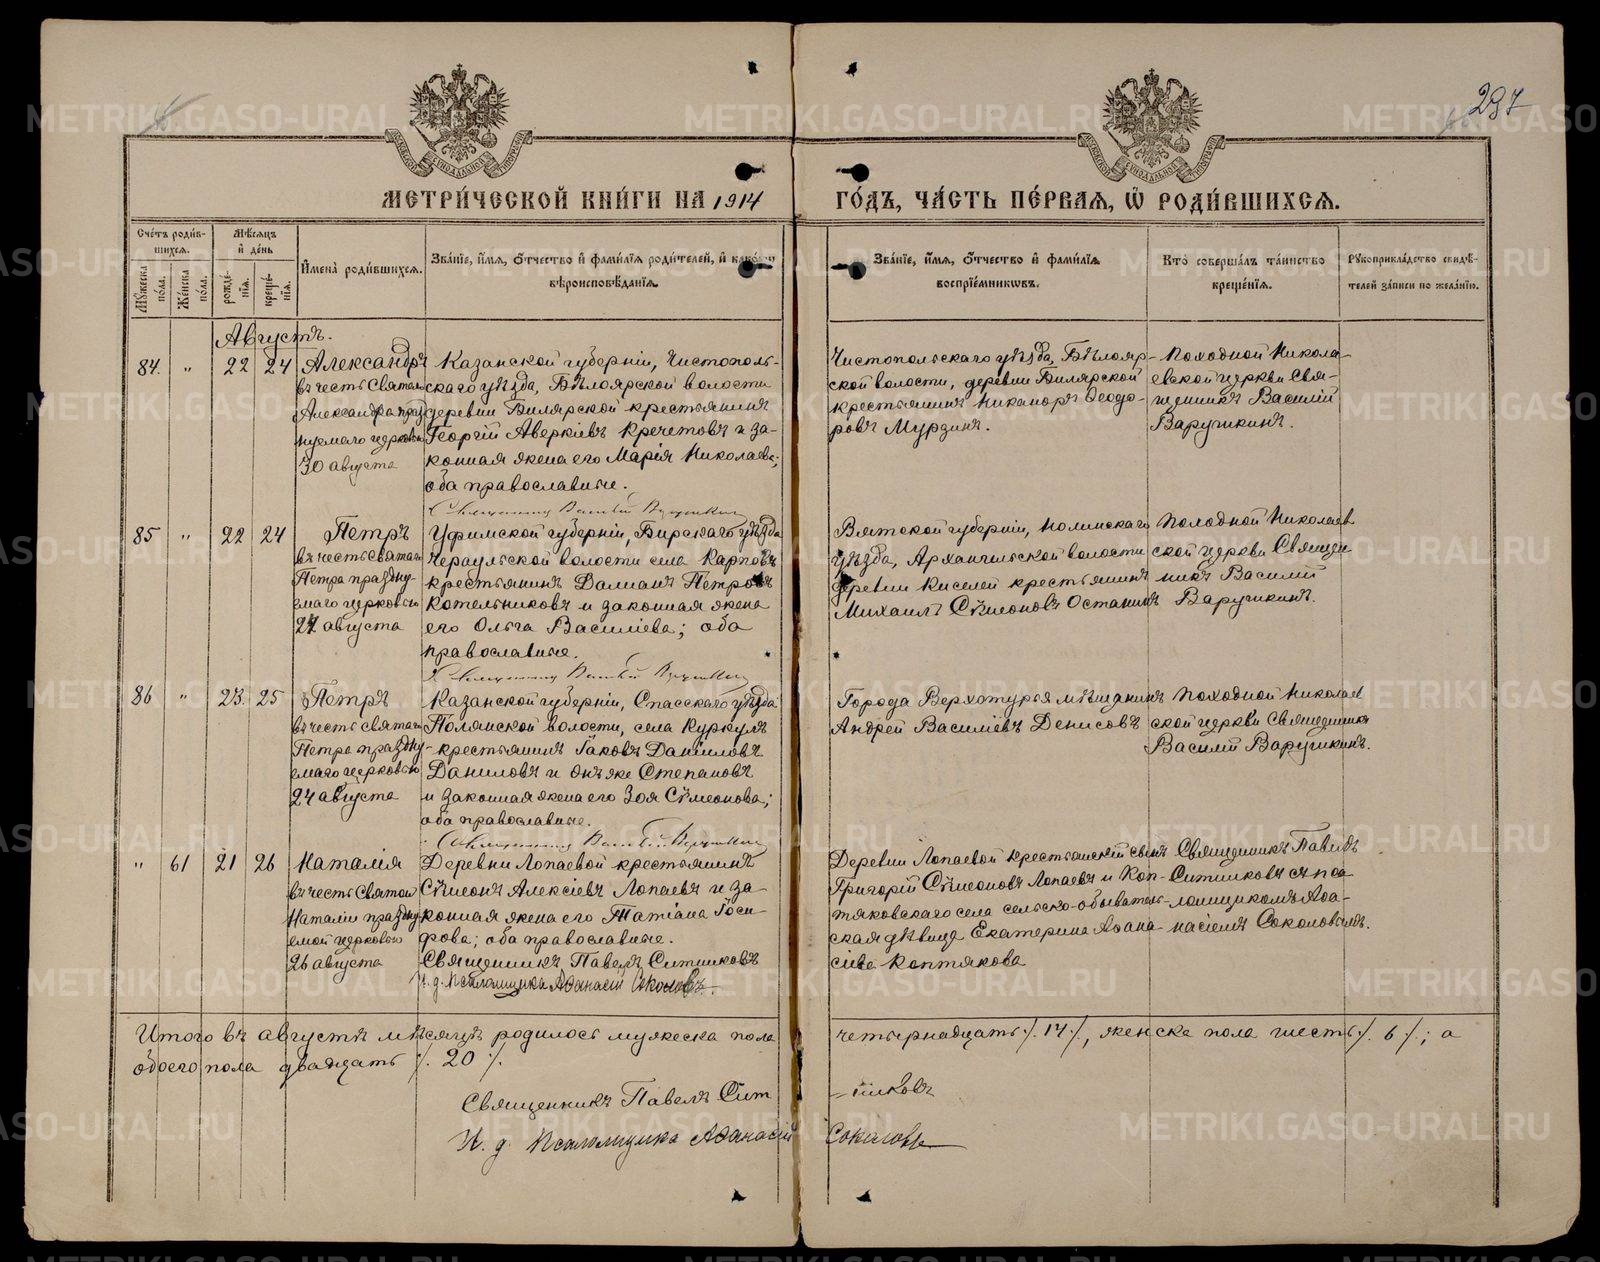 297
МЕТРИ́ЧЕСКОЙ КНИ́ГИ НА 1914 ГО́ДЪ, ЧА́СТЬ ПЕ́РВАЯ, Ѽ РОДИ́ВШИХСЯ.
Сче́тъ роди́в-
шихся.
Му́жеска по́ла.
Же́нска по́ла.
Мѣ́сяцъ и де́нь
рожде́-
нїя.
креще́-
нїя.
Имена̀ роди́вшихся.
Зва́нїе, и́мя, о́тчество и фами́лїя роди́телей, и како́гѡ
вѣроисповѣ́данїя.
Зва́нїе, и́мя, о́тчество и фами́лїя
воспрїе́мникѡвъ.
Кто̀ соверша́лъ та́инство
креще́нїя.
Рꙋкоприкла́дство свидѣ́-
телей за́писи по жела́нїю.
Августъ.
84. " 22 24
Александръ
въ честь Святаго
Александра празд
нуемаго церковью
30 августа
Казанской губерніи, Чистополь-
скаго уѣзда, Бѣлоярской волости
деревни Билярской крестьянинъ
Георгій Аверкіевъ Кречетовъ и за-
конная жена его Марія Николаева;
оба православные.
Священникъ Василій Варушкинъ
Чистопольскаго уѣзда, Бѣлояр-
ской волости, деревни Билярской
крестьянинъ Никаноръ Ѳеодо-
ровъ Мурзинъ.
Походной Никола-
евской церкви Свя-
щенникъ Василій
Варушкинъ.
85 " 22 24
Петръ
въ честь Святаго
Петра праздну-
емаго церковью
24 августа
Уфимской губерніи, Бирскаго уѣзда
Чераульской волости села Карповъ
крестьянинъ Даміанъ Петровъ
Котельниковъ и законная жена
его Ольга Василіева; оба
православные.
Священникъ Василій Варушкинъ
Вятской губерніи, Нолинскаго
уѣзда, Архангельской волости
деревни Киселей крестьянинъ
Михаилъ Сѵмеоновъ Останинъ
Походной Николаев
ской церкви Священ
никъ Василій
Варушкинъ.
86 " 23. 25
Петръ
въ честь святаго
Петра праздну-
емаго церковью
24 августа
Казанской губерніи, Спасскаго уѣзда
Полянской волости, села Куркуль
крестьянинъ Іаковъ Даніиловъ
Даниловъ и онъ же Степановъ
и законная жена его Зоя Сѵмеонова;
оба православные.
Священникъ Василій Варушкинъ
Города Верхотурья мѣщанинъ
Андрей Василіевъ Денисовъ
Походной Николаев
ской церкви Священникъ
Василій Варушкинъ.
" 61 21 26
Наталія
въ честь Святой
Наталіи праздну
емой церковью
26 августа
Деревни Лопаевой крестьянинъ
Сѵмеонъ Алексіевъ Лопаевъ и за-
конная жена его Татіана Іоси-
фова; оба православные.
Священникъ Павелъ Ситниковъ
И. д. Псаломщика Аѳанасій Соколовъ.
Деревни Лопаевой крестьянскій сынъ
Григорій Сѵмеоновъ Лопаевъ и Коп-
тяковскаго села сельско-обыватель-
ская дѣвица Екатерина Аѳана-
сіева Коптякова
Священникъ Павелъ
Ситниковъ съ пса
ломщикомъ Аѳа-
насіемъ Соколовымъ.
Итого въ августѣ мѣсяцѣ родилось мужеска пола четырнадцать ./. 14 ./., женска пола шесть ./. 6 ./.; а
обоего пола двадцать ./. 20 ./.
Священникъ Павелъ Сит-никовъ
И. д. Псаломщика Аѳанасій Соколовъ
METRIKI.GASO-URAL.RU